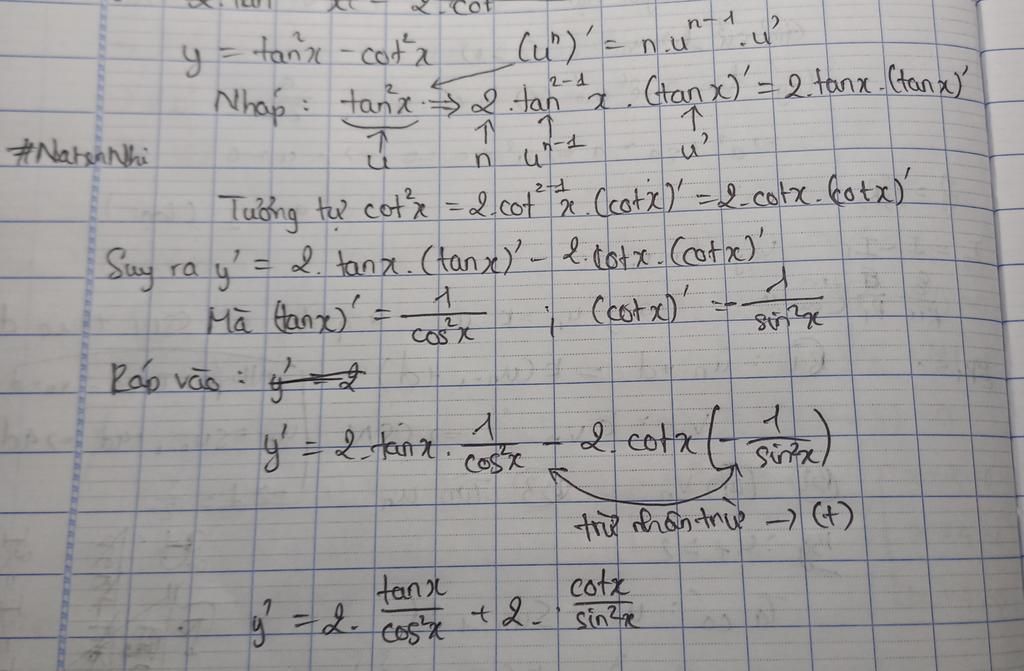 2. cot
y = tan²x − cot²x (uⁿ)' = n.uⁿ⁻¹.u'
Nháp : tan²x ⇒ 2.tan²⁻¹x.(tanx)' = 2.tanx.(tanx)'
↑ ↑ ↑ ↑
u n uⁿ⁻¹ u'
Tương tự cot²x = 2.cot²⁻¹x.(cotx)' = 2.cotx.(cotx)'
Suy ra y' = 2.tanx.(tanx)' − 2.cotx.(cotx)'
Mà (tanx)' = 1/cos²x ; (cotx)' = −1/sin²x
Ráp vào : y' = 2
y' = 2.tanx.1/cos²x − 2.cotx(−1/sin²x)
trừ nhân trừ → (+)
y' = 2.tanx/cos²x + 2.cotx/sin²x